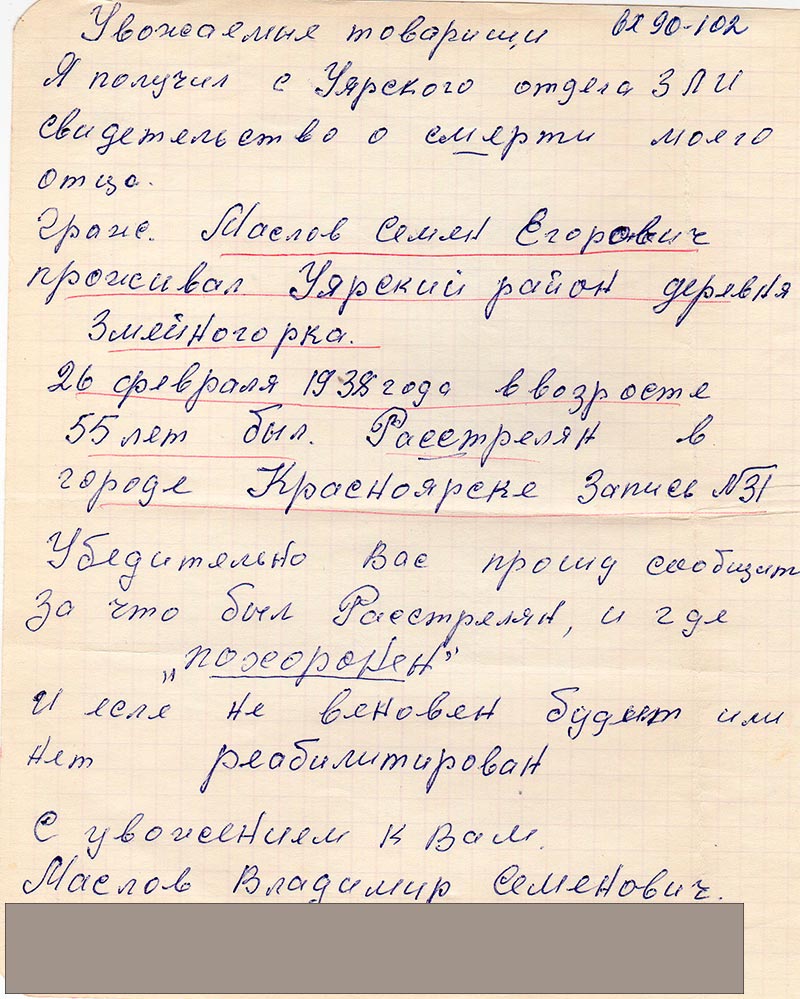 Увожаемые товарищи вх 90-102
Я получил с Уярского отдела ЗЛИ
свидетельство о смерти моего
отца.
Граж. Маслов Семен Егорович
проживал Уярский район деревня
Змейногорка.
26 февраля 1938 года в возросте
55 лет был. Расстрелян в
городе Красноярске Запись №31
Убедительно Вас прошу сообщит
За что был Расстрелян, и где
„похоронен"
И есле не веновен будет или
нет реабилитирован
С увожением к Вам.
Маслов Владимир Семенович.